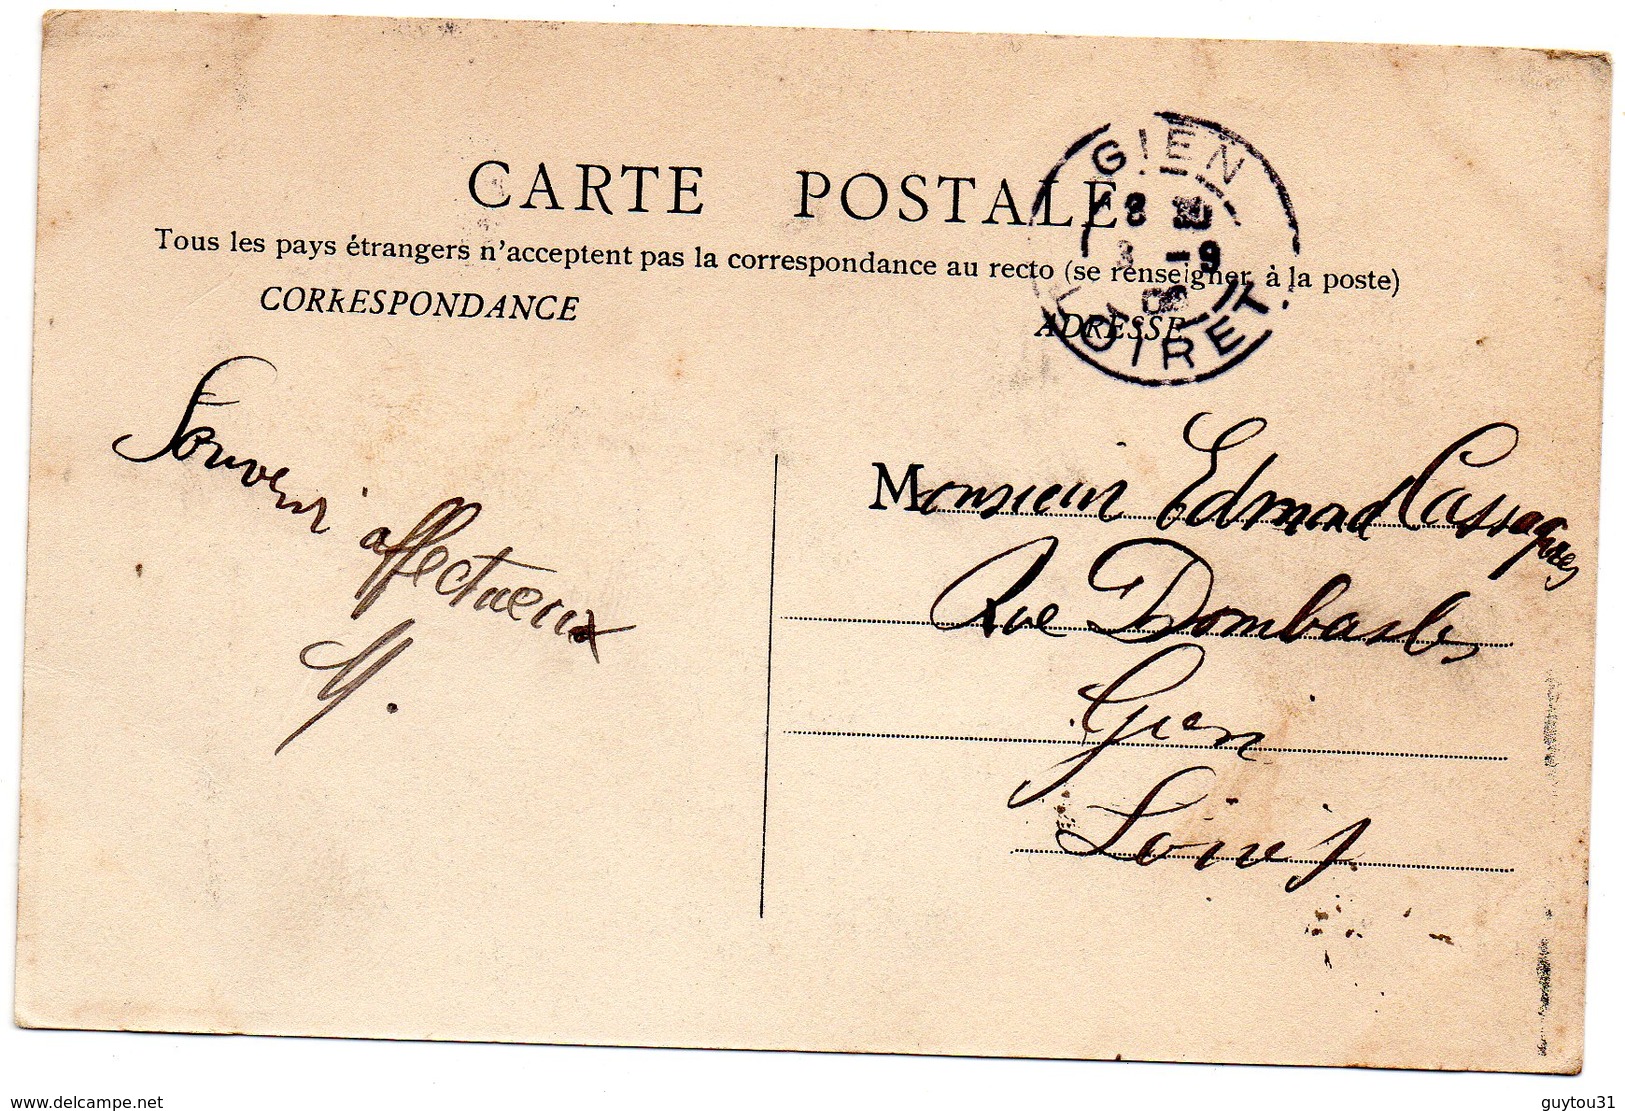 CARTE POSTALE
Tous les pays étrangers n'acceptent pas la correspondance au recto (se renseigner à la poste)
CORRESPONDANCE
ADRESSE
GIEN
8
3 -9
LOIRET
Souvenir affectueux
Monsieur Edmond Cassagnes
Rue Dombasle
Gien
Loiret
www.delcampe.net
guytou31